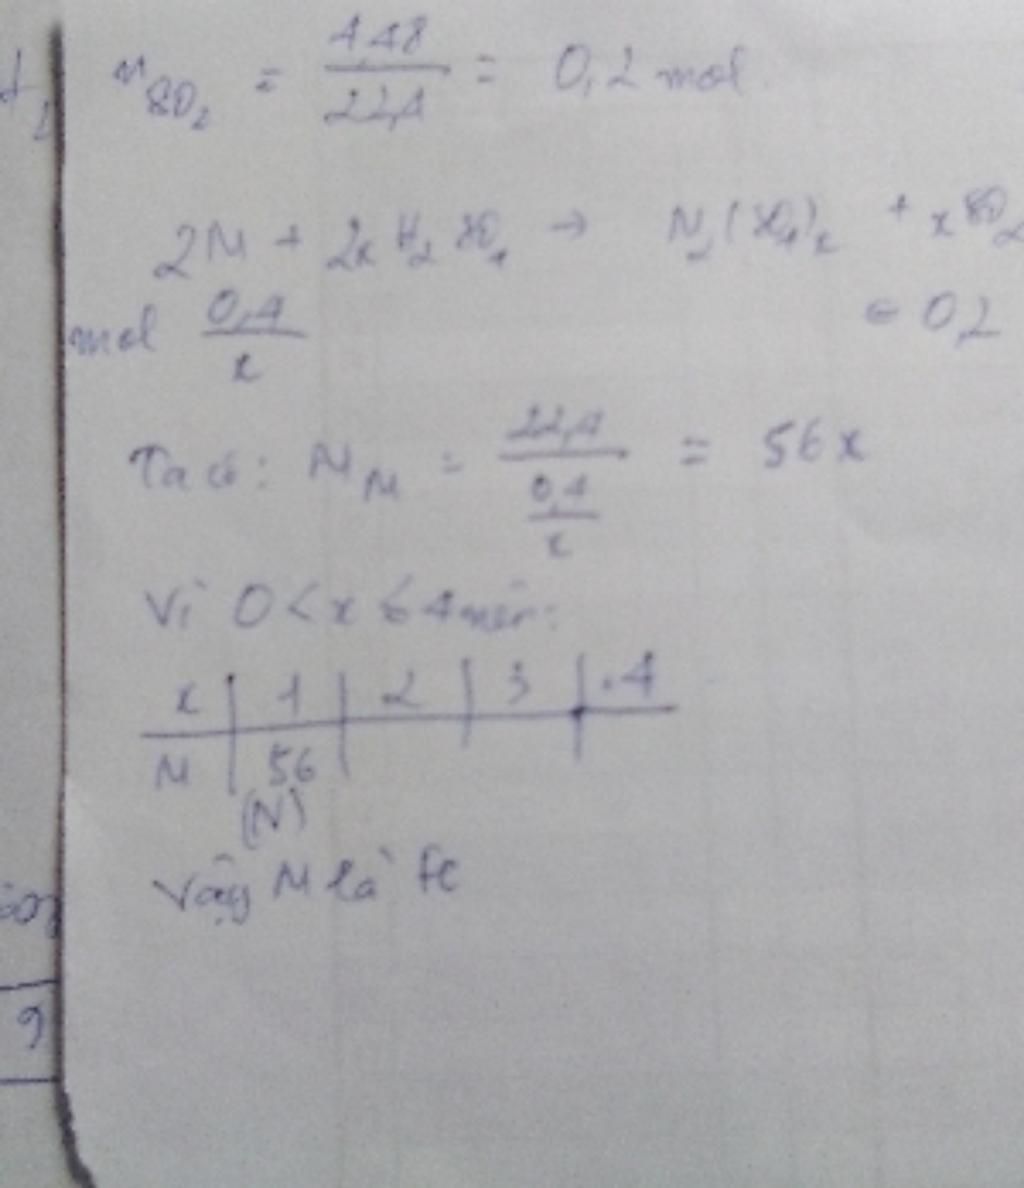 n SO2 = 4,48 / 22,4 = 0,2 mol
2M + 2x H2SO4 → M2(SO4)x + x SO2
mol 0,4 / x ← 0,2
Ta có: M M = 22,4 / (0,4 / x) = 56x
Vì 0 < x ≤ 4 nên:
x | 1 | 2 | 3 | 4
M | 56
(N)
Vậy M là Fe
9